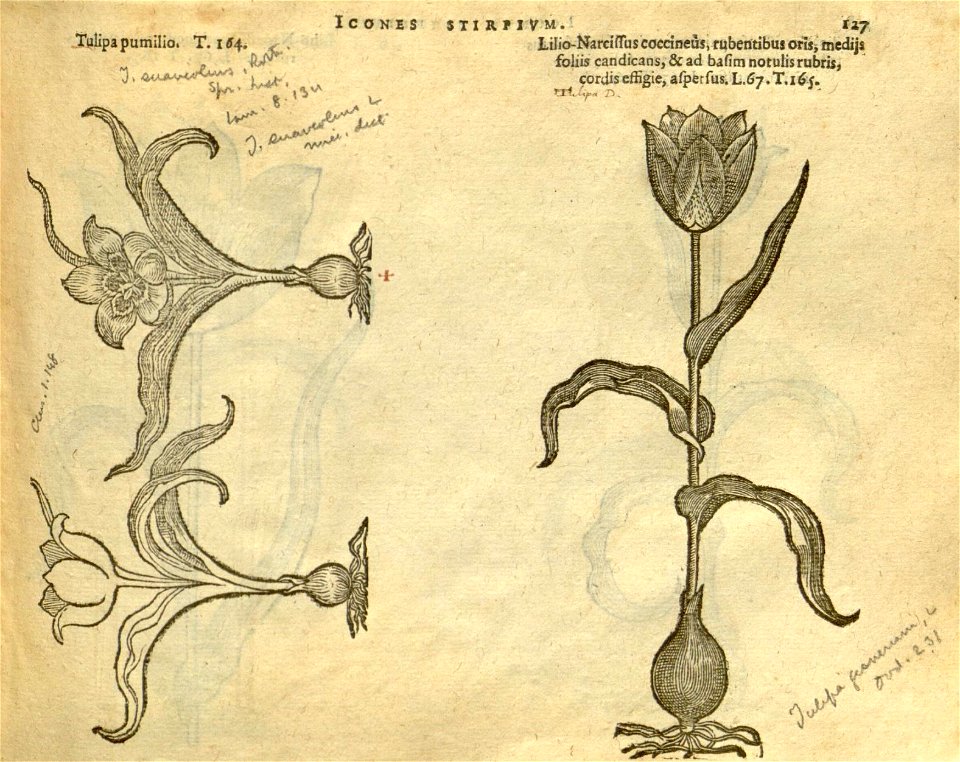 ICONES STIRPIVM.
127
Tulipa pumilio. T. 164.
T. suaveolens, Roth.
Spr. hist.
Lam. 8. 13
T. suaveolens
dict.
Lilio-Narcissus coccineus, rubentibus oris, medijs
foliis candicans, & ad basim notulis rubris,
cordis effigie, aspersus. L. 67. T. 165.
Tulipa D.
+
Clus. 1. 148
Tulipa gesneriana, L
231